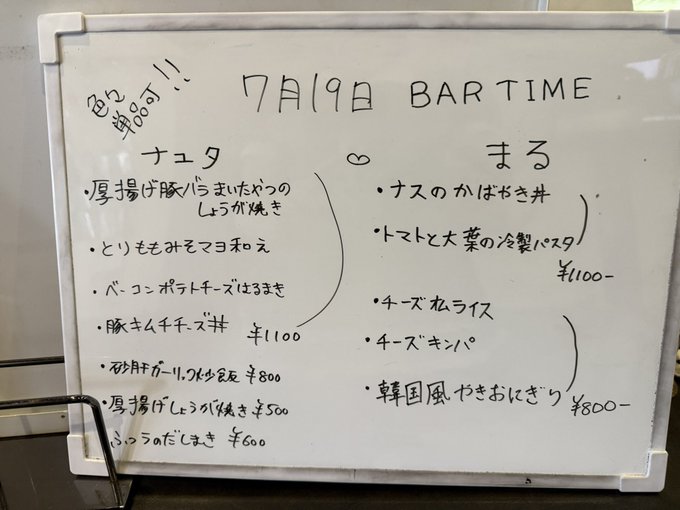 色々
単品可!!
7月19日 BAR TIME
ナユタ
・厚揚げ豚バラまいたやつの
しょうが焼き
・とりももみそマヨ和え
・ベーコンポテトチーズはるまき
・豚キムチチーズ丼 ¥1100
・砂肝ガーリック炒飯 ¥800
・厚揚げしょうが焼き ¥500
ふつうのだしまき ¥600
まる
・ナスのかばやき丼
・トマトと大葉の冷製パスタ
¥1100-
・チーズオムライス
・チーズキンパ
・韓国風やきおにぎり ¥800-